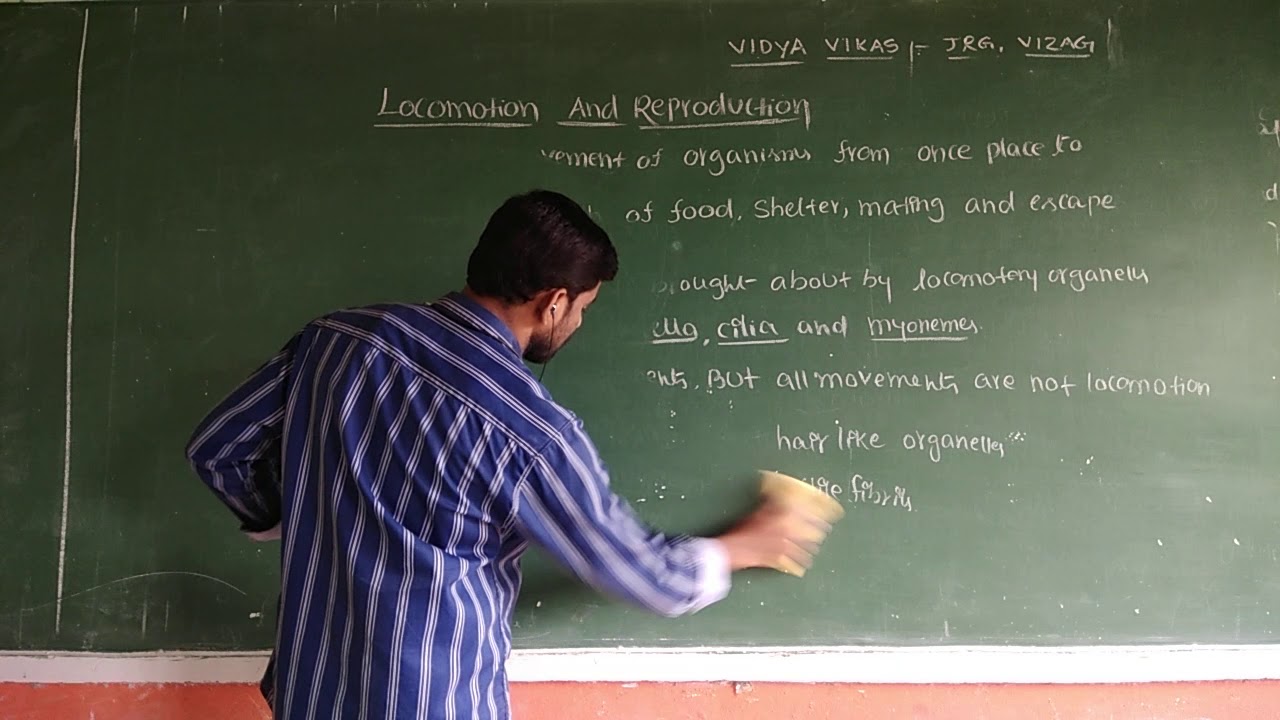 VIDYA VIKAS :- JRG, VIZAG
Locomotion And Reproduction
vement of organisms from once place to
of food, Shelter, mating and escape
ought about by locomotory organels
cilia and myonemes.
ents, But all movements are not locomotion
hair like organelles
fibrils.